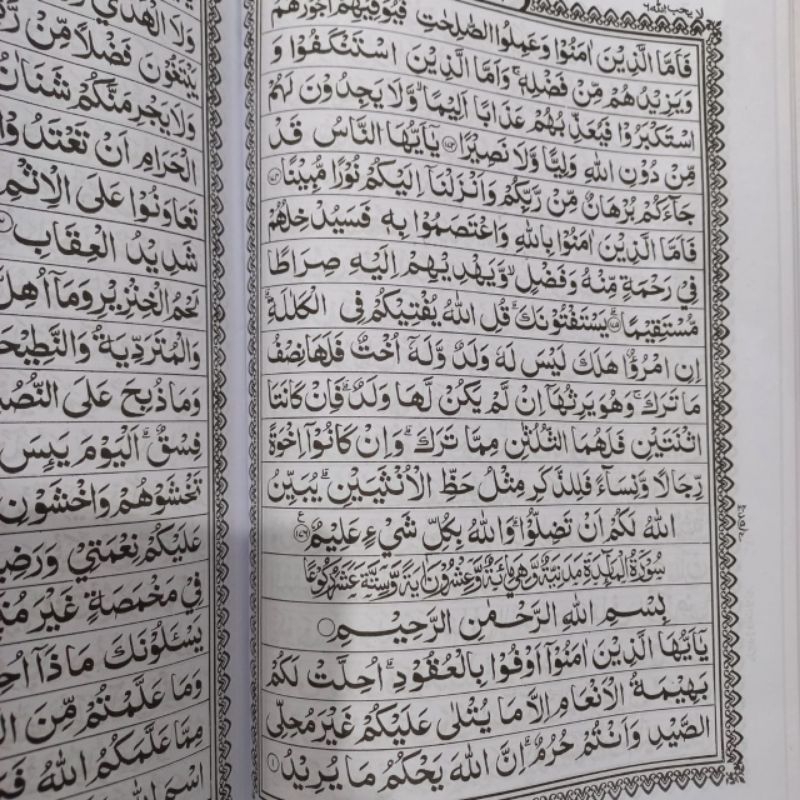 لا يحب الله ٦
فَاَمَّا الَّذِيْنَ اٰمَنُوْا وَعَمِلُوا الصّٰلِحٰتِ فَيُوَفِّيْهِمْ اُجُوْرَهُمْ
وَيَزِيْدُهُمْ مِّنْ فَضْلِهٖ ۚ وَاَمَّا الَّذِيْنَ اسْتَنْكَفُوْا وَ
اسْتَكْبَرُوْا فَيُعَذِّبُهُمْ عَذَابًا اَلِيْمًا ۙ وَّلَا يَجِدُوْنَ لَهُمْ
مِّنْ دُوْنِ اللّٰهِ وَلِيًّا وَّلَا نَصِيْرًا ﴿۱۷۳﴾ يٰۤاَيُّهَا النَّاسُ قَدْ
جَآءَكُمْ بُرْهَانٌ مِّنْ رَّبِّكُمْ وَاَنْزَلْنَاۤ اِلَيْكُمْ نُوْرًا مُّبِيْنًا ﴿۱۷۴﴾
فَاَمَّا الَّذِيْنَ اٰمَنُوْا بِاللّٰهِ وَاعْتَصَمُوْا بِهٖ فَسَيُدْخِلُهُمْ
فِيْ رَحْمَةٍ مِّنْهُ وَفَضْلٍ ۙ وَّيَهْدِيْهِمْ اِلَيْهِ صِرَاطًا
مُّسْتَقِيْمًا ﴿۱۷۵﴾ يَسْتَفْتُوْنَكَ ؕ قُلِ اللّٰهُ يُفْتِيْكُمْ فِى الْكَلٰلَةِ ؕ
اِنِ امْرُؤٌا هَلَكَ لَيْسَ لَهٗ وَلَدٌ وَّلَهٗۤ اُخْتٌ فَلَهَا نِصْفُ
مَا تَرَكَ ۚ وَهُوَ يَرِثُهَاۤ اِنْ لَّمْ يَكُنْ لَّهَا وَلَدٌ ؕ فَاِنْ كَانَتَا
اثْنَتَيْنِ فَلَهُمَا الثُّلُثٰنِ مِمَّا تَرَكَ ؕ وَاِنْ كَانُوْۤا اِخْوَةً
رِّجَالًا وَّنِسَآءً فَلِلذَّكَرِ مِثْلُ حَظِّ الْاُنْثَيَيْنِ ؕ يُبَيِّنُ
اللّٰهُ لَكُمْ اَنْ تَضِلُّوْا ؕ وَاللّٰهُ بِكُلِّ شَيْءٍ عَلِيْمٌ ﴿۱۷۶﴾
سُوْرَةُ الْمَآئِدَةِ مَدَنِيَّةٌ وَّهِيَ مِائَةٌ وَّعِشْرُوْنَ اٰيَةً وَّسِتَّةَ عَشَرَ رُكُوْعًا
بِسْمِ اللّٰهِ الرَّحْمٰنِ الرَّحِيْمِ
يٰۤاَيُّهَا الَّذِيْنَ اٰمَنُوْۤا اَوْفُوْا بِالْعُقُوْدِ ؕ اُحِلَّتْ لَكُمْ
بَهِيْمَةُ الْاَنْعَامِ اِلَّا مَا يُتْلٰى عَلَيْكُمْ غَيْرَ مُحِلِّى
الصَّيْدِ وَاَنْتُمْ حُرُمٌ ؕ اِنَّ اللّٰهَ يَحْكُمُ مَا يُرِيْدُ ﴿۱﴾
وَلَا الْهَدْيَ
يَبْتَغُوْنَ فَضْلًا مِّنْ
وَلَا يَجْرِمَنَّكُمْ شَنَاٰنُ
الْحَرَامِ اَنْ تَعْتَدُوْا
تَعَاوَنُوْا عَلَى الْاِثْمِ
شَدِيْدُ الْعِقَابِ
لَحْمُ الْخِنْزِيْرِ وَمَاۤ اُهِلَّ
وَالْمُتَرَدِّيَةُ وَالنَّطِيْحَ
وَمَا ذُبِحَ عَلَى النُّصُ
فِسْقٌ ؕ اَلْيَوْمَ يَئِسَ
تَخْشَوْهُمْ وَاخْشَوْنِ
عَلَيْكُمْ نِعْمَتِيْ وَرَضِ
فِيْ مَخْمَصَةٍ غَيْرَ مُ
يَسْـَٔلُوْنَكَ مَاذَاۤ اُحِ
وَمَا عَلَّمْتُمْ مِّنَ الْ
مِمَّا عَلَّمَكُمُ اللّٰهُ فَ
اسْمَ اللّٰهِ